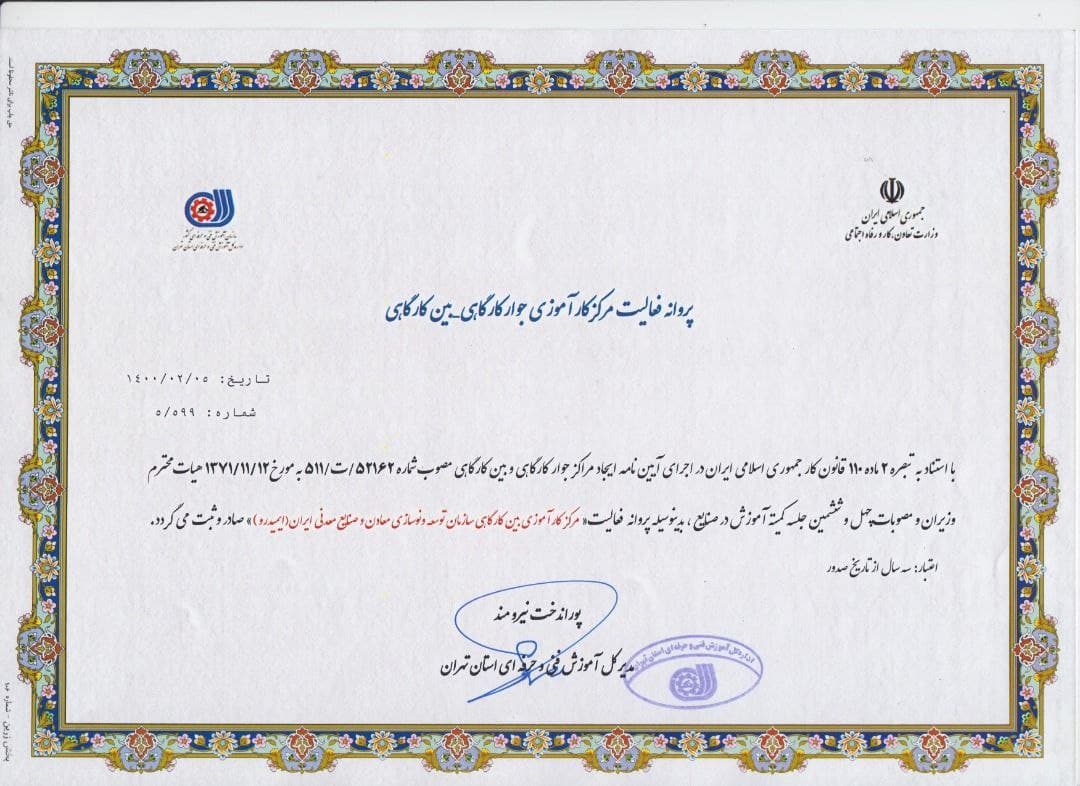 جمهوری اسلامی ایران
وزارت تعاون، کار و رفاه اجتماعی
سازمان آموزش فنی و حرفه ای کشور
اداره کل آموزش فنی و حرفه ای استان تهران
پروانه فعالیت مرکز کارآموزی جوار کارگاهی_بین کارگاهی
تاریخ: ۱۴۰۰/۰۲/۰۵
شماره: ۵/۵۹۹
با استناد به تبصره ۲ ماده ۱۱۰ قانون کار جمهوری اسلامی ایران در اجرای آیین نامه ایجاد مراکز جوار کارگاهی و بین کارگاهی مصوب شماره ۵۲۱۶۲/ت/۵۱۱ به مورخ ۱۳۷۱/۱۱/۱۲ هیات محترم
وزیران و مصوبات چهل و ششمین جلسه کمیته آموزش در صنایع ، بدینوسیله پروانه فعالیت« مرکز کارآموزی بین کارگاهی سازمان توسعه و نوسازی معادن و صنایع معدنی ایران(ایمیدرو )» صادر و ثبت می گردد.
اعتبار: سه سال از تاریخ صدور
پوراندخت نیرومند
مدیر کل آموزش فنی و حرفه ای استان تهران
اداره کل آموزش فنی و حرفه ای استان تهران
حق چاپ برای ناشر محفوظ است